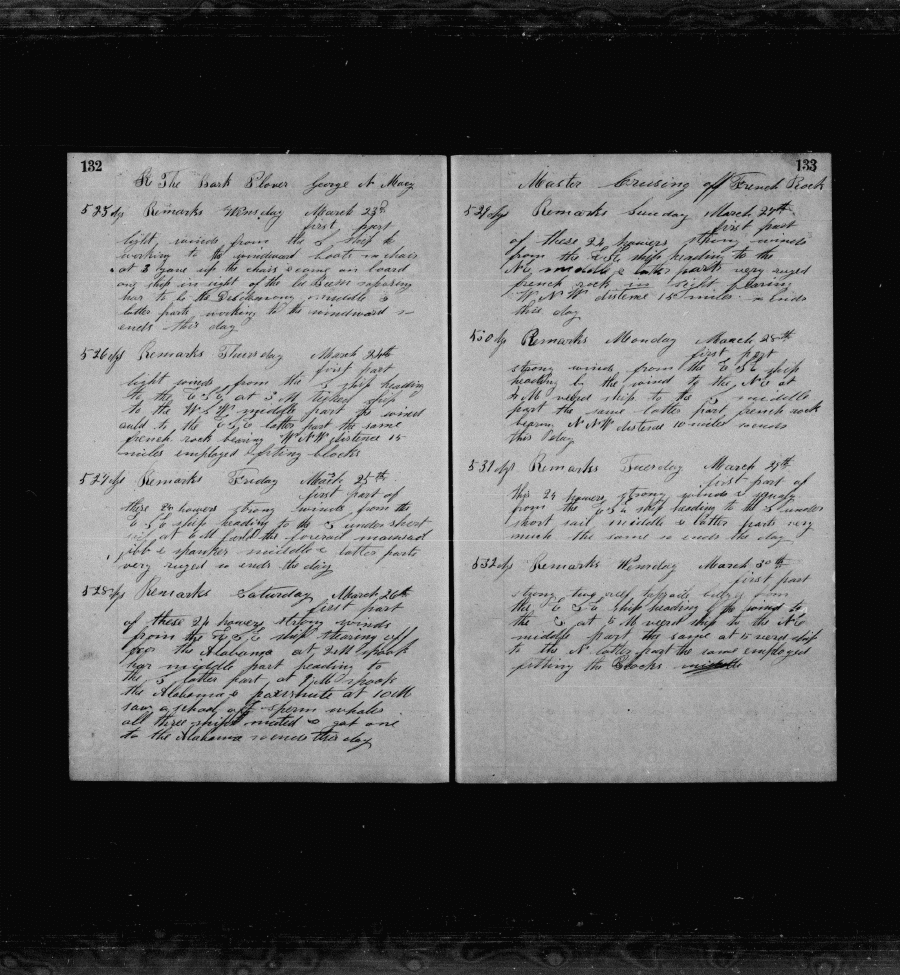 132
The Bark Plover George N Macy
525 dys Remarks Wensday March 23d
first part
light winds from the S ship
working to the windward boats in chais
at 2 gave up the chais & come on board
one ship in sight of the
middle &
latter parts working to the windward so
ends this day
526 dys Remarks Thursday March 24th
first part
light winds from the S ship heading
to the ESE at 3 PM ship
to the WSW middle part the wind
to the ESE latter part the same
french rock bearing WNW distence 15
miles employed fiting blocks
527 dys Remarks Friday March 25th
first part of
these 24 howers strong winds from the
ESE ship heading to the S under short
sail at 6 PM the foresail mainsail
jibb & spanker middle & latter parts
very ruged so ends the day
528 dys Remarks Saturday March 26th
first part
of these 24 howers strong winds
from the ESE ship stearing off
for the Alabama at 2 PM spook
har middle part heading to
the S latter part at 9 AM spook
the Alabama & at 10 AM
saw a school off sperm whales
all three ships & got one
to the Alabama so ends this day
133
Master Cruising off French Rock
529 dys Remarks Sunday March 27th
first part
of these 24 howers strong winds
from the ESE ship heading to the
NE middle & latter parts very ruged
french rock in sight bearing
WNW distence 15 miles so ends
this day
530 dys Remarks Monday March 28th
first part
strong winds from the ESE ship
heading by the wind to the NE at
4 PM vered ship to the S middle
part the same latter part french rock
bearing NNW distence 10 miles so ends
this day
531 dys Remarks Tuesday March 29th
first part of
this 24 howers strong winds &
from the ESE ship heading to the S under
short sail middle & latter parts very
much the same so ends the day
532 dys Remarks Wensday March 30th
first part
strong from
the ESE ship heading by the wind to
the S at 5 PM vered ship to the NE
middle part the same at 5 vered ship
to the N latter part the same employed
fitting the blocks